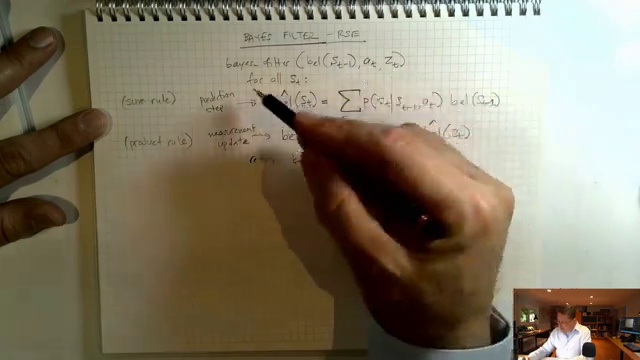 BAYES FILTER - RSE
bayes filter (bel(s_{t-1}), a_t, z_t)
for all s_t:
(sum rule) prediction step → (s_t) = ∑ p(s_t | s_{t-1}, a_t) bel(s_{t-1})
(product rule) measurement update → be (s_t)